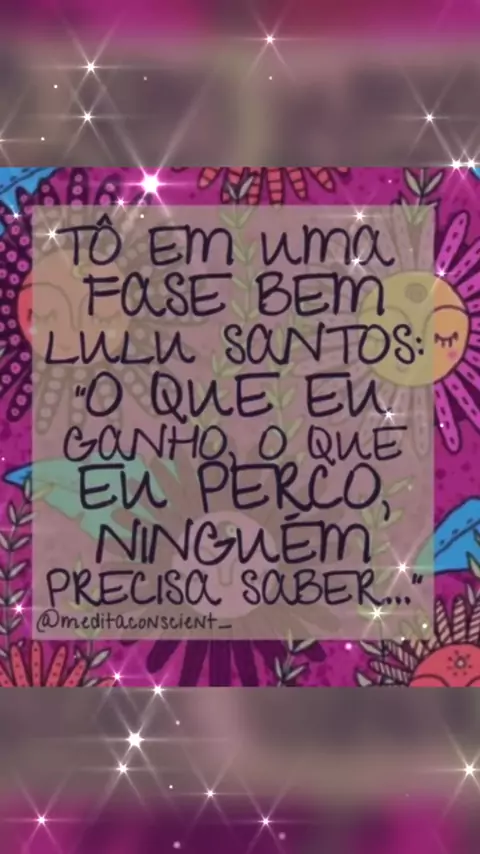 TÔ EM UMA
FASE BEM
LULU SANTOS:
"O QUE EU
GANHO, O QUE
EU PERCO,
NINGUÉM
PRECISA SABER..."
@meditaconscient_